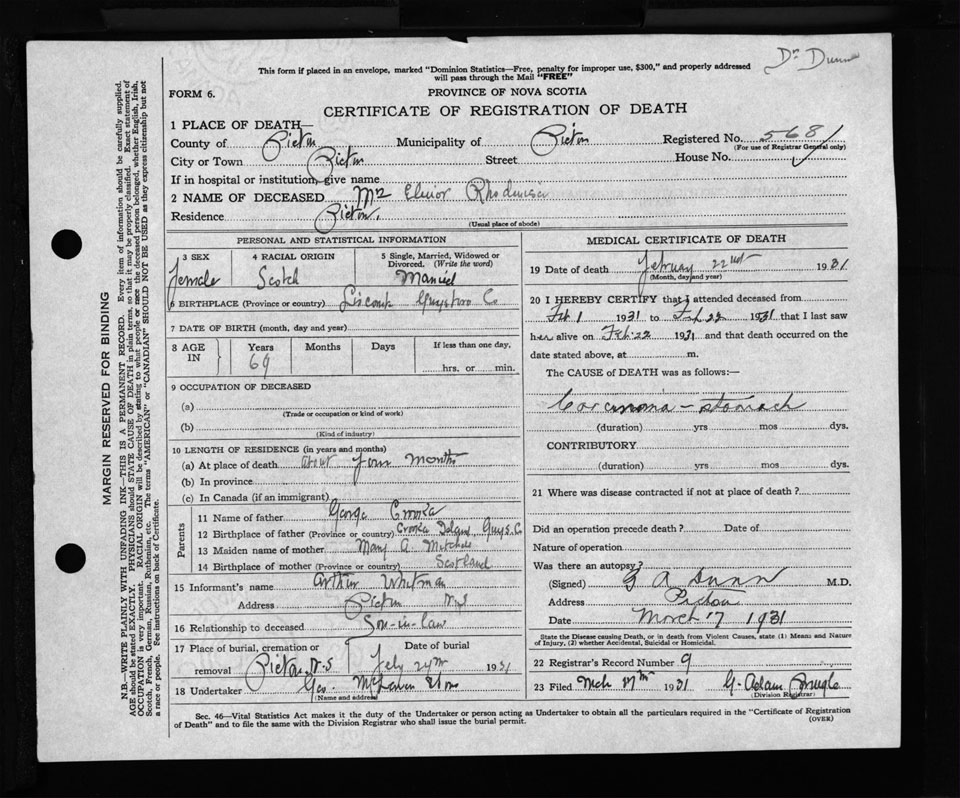 Dr Dunn
This form if placed in an envelope, marked "Dominion Statistics—Free, penalty for improper use, $300," and properly addressed
will pass through the Mail "FREE"
FORM 6.
PROVINCE OF NOVA SCOTIA
CERTIFICATE OF REGISTRATION OF DEATH
1 PLACE OF DEATH—
County of Pictou Municipality of Pictou Registered No. 5681
(For use of Registrar General only)
City or Town Pictou Street House No.
If in hospital or institution, give name
2 NAME OF DECEASED Mrs
Residence Pictou,
(Usual place of abode)
PERSONAL AND STATISTICAL INFORMATION
3 SEX 4 RACIAL ORIGIN 5 Single, Married, Widowed or Divorced. (Write the word)
Female Scotch Married
6 BIRTHPLACE (Province or country) Liscomb Guysboro Co
7 DATE OF BIRTH (month, day and year)
8 AGE IN Years Months Days If less than one day,
69 hrs. or min.
9 OCCUPATION OF DECEASED
(a)
(Trade or occupation or kind of work)
(b)
(Kind of industry)
10 LENGTH OF RESIDENCE (in years and months)
(a) At place of death about four months
(b) In province
(c) In Canada (if an immigrant)
Parents
11 Name of father George
12 Birthplace of father (Province or country) Guys. Co
13 Maiden name of mother Mary A. Mitchell
14 Birthplace of mother (Province or country) Scotland
15 Informant's name Arthur Whitman
Address Pictou N.S
16 Relationship to deceased Son-in-law
17 Place of burial, cremation or removal Date of burial
Pictou, N.S. Feby 24th 1931
18 Undertaker Geo. McLaren & Sons
(Name and address)
MEDICAL CERTIFICATE OF DEATH
19 Date of death February 22nd 1931
(Month, day and year)
20 I HEREBY CERTIFY that I attended deceased from
Feb 1 1931 to Feb 22 1931 that I last saw
her alive on Feb. 22 1931 and that death occurred on the
date stated above, at m.
The CAUSE of DEATH was as follows:—
Carcinoma - stomach
(duration) yrs mos dys.
CONTRIBUTORY
(duration) yrs mos dys.
21 Where was disease contracted if not at place of death?
Did an operation precede death? Date of
Nature of operation
Was there an autopsy?
(Signed) G A Dunn M.D.
Address Pictou
Date March 17 1931
State the Disease causing Death, or in death from Violent Causes, state (1) Means and Nature
of Injury, (2) whether Accidental, Suicidal or Homicidal.
22 Registrar's Record Number 9
23 Filed Mch 17th 1931 G. Adam
(Division Registrar)
Sec. 46—Vital Statistics Act makes it the duty of the Undertaker or person acting as Undertaker to obtain all the particulars required in the "Certificate of Registration
of Death" and to file the same with the Division Registrar who shall issue the burial permit.
(OVER)
MARGIN RESERVED FOR BINDING
N.B.—WRITE PLAINLY WITH UNFADING INK—THIS IS A PERMANENT RECORD. Every item of information should be carefully supplied.
AGE should be stated EXACTLY. PHYSICIANS should STATE CAUSE OF DEATH in plain terms, so that it may be properly classified. Exact statement of
OCCUPATION is very important. RACIAL ORIGIN will be described by stating to what people or race the deceased person belonged, whether English, Irish,
Scotch, French, German, Russian, Ruthenian, etc. The terms "AMERICAN" or "CANADIAN" SHOULD NOT BE USED as they express citizenship but not
a race or people. See instructions on back of Certificate.